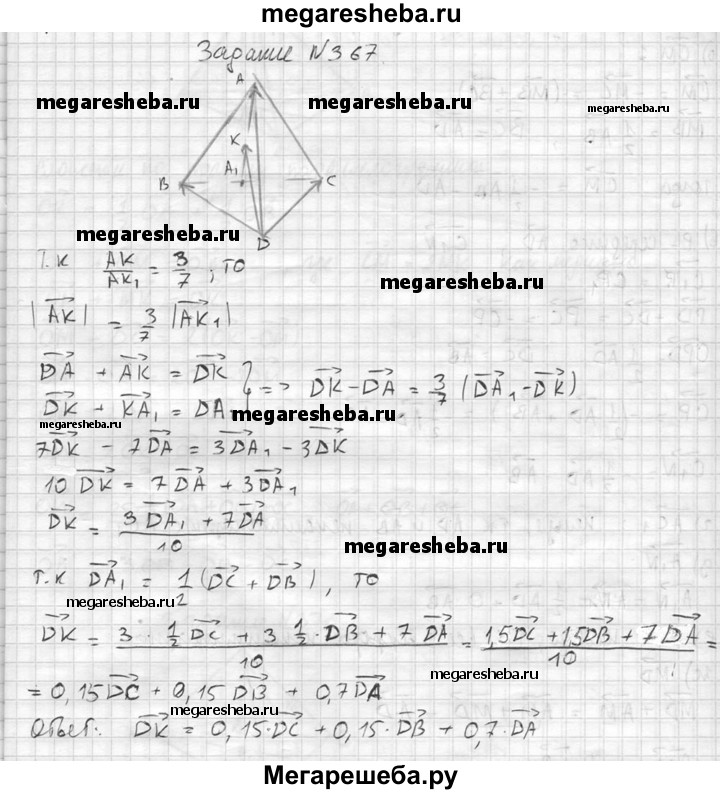 megaresheba.ru
Задание N367.
A
megaresheba.ru megaresheba.ru
megaresheba.ru
K
A₁
B C
megaresheba.ru
D
Т.к AK/AK₁ = 3/7, то
megaresheba.ru
|AK| = 3/7 |AK₁|
DA + AK = DK
DK + KA₁ = DA₁ } => DK - DA = 3/7 (DA₁ - DK)
megaresheba.ru
megaresheba.ru
7DK - 7DA = 3DA₁ - 3DK
10 DK = 7DA + 3DA₁
DK = (3DA₁ + 7DA)/10
megaresheba.ru
т.к DA₁ = 1/2 (DC + DB), то
megaresheba.ru
DK = (3 · 1/2 DC + 3 1/2 · DB + 7 DA)/10 = (1,5DC + 1,5DB + 7DA)/10 =
megaresheba.ru
= 0,15DC + 0,15DB + 0,7DA
megaresheba.ru
Ответ: DK = 0,15·DC + 0,15·DB + 0,7·DA
megaresheba.ru
Мегарешеба.ру